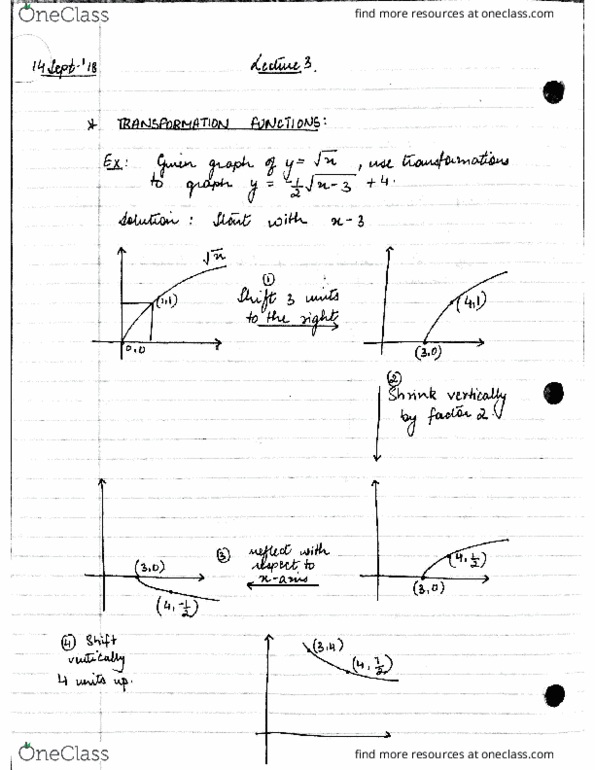 OneClass
find more resources at oneclass.com
14 Sept-'18
Lecture 3.
* TRANSFORMATION FUNCTIONS:
Ex: Given graph of y = √x, use transformations
to graph y = -1/2 √x-3 + 4.
Solution: Start with x-3
√x
(1,1)
0,0
① Shift 3 units
to the right
(4,1)
(3,0)
② Shrink vertically
by factor 2.
(3,0)
(4,-1/2)
③ reflect with
respect to
x-axis
(4,1/2)
(3,0)
④ Shift
vertically
4 units up.
(3,4)
(4,7/2)
OneClass
find more resources at oneclass.com